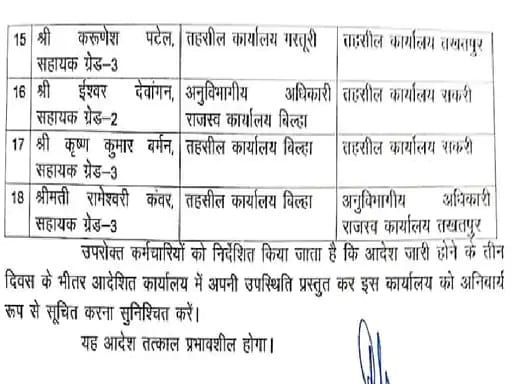 15 श्री करूणेश पटेल, तहसील कार्यालय मस्तूरी तहसील कार्यालय तखतपुर
सहायक ग्रेड-3
16 श्री ईश्वर देवांगन, अनुविभागीय अधिकारी तहसील कार्यालय सकरी
सहायक ग्रेड-2 राजस्व कार्यालय बिल्हा
17 श्री कृष्ण कुमार बर्मन, तहसील कार्यालय बिल्हा तहसील कार्यालय सकरी
सहायक ग्रेड-3
18 श्रीमती रामेश्वरी कंवर, तहसील कार्यालय बिल्हा अनुविभागीय अधिकारी
सहायक ग्रेड-3 राजस्व कार्यालय तखतपुर
उपरोक्त कर्मचारियों को निर्देशित किया जाता है कि आदेश जारी होने के तीन
दिवस के भीतर आदेशित कार्यालय में अपनी उपस्थिति प्रस्तुत कर इस कार्यालय को अनिवार्य
रूप से सूचित करना सुनिश्चित करें।
यह आदेश तत्काल प्रभावशील होगा।